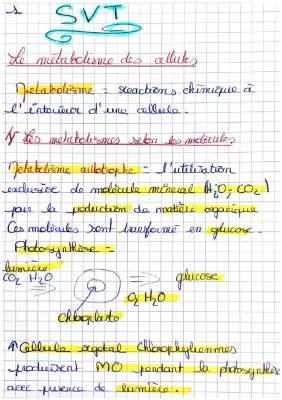 1
SVT
Le métabolisme des cellules
Métabolisme = réactions chimique à
l'intérieur d'une cellule.
I/ Les métabolismes selon les molécules
Métabolisme autotrophe = l'utilisation
exclusive de molécule minéral (H2O; CO2)
pour la production de matière organique
Ces molécules sont transformé en glucose.
Photosynthèse =
lumière
CO2 H2O ⇒ ⇒ glucose
O2 H2O
Chloroplaste
↑ Cellule végétal Chlorophyliennes
produisent MO pendant la photosynthèse
avec présence de lumière.